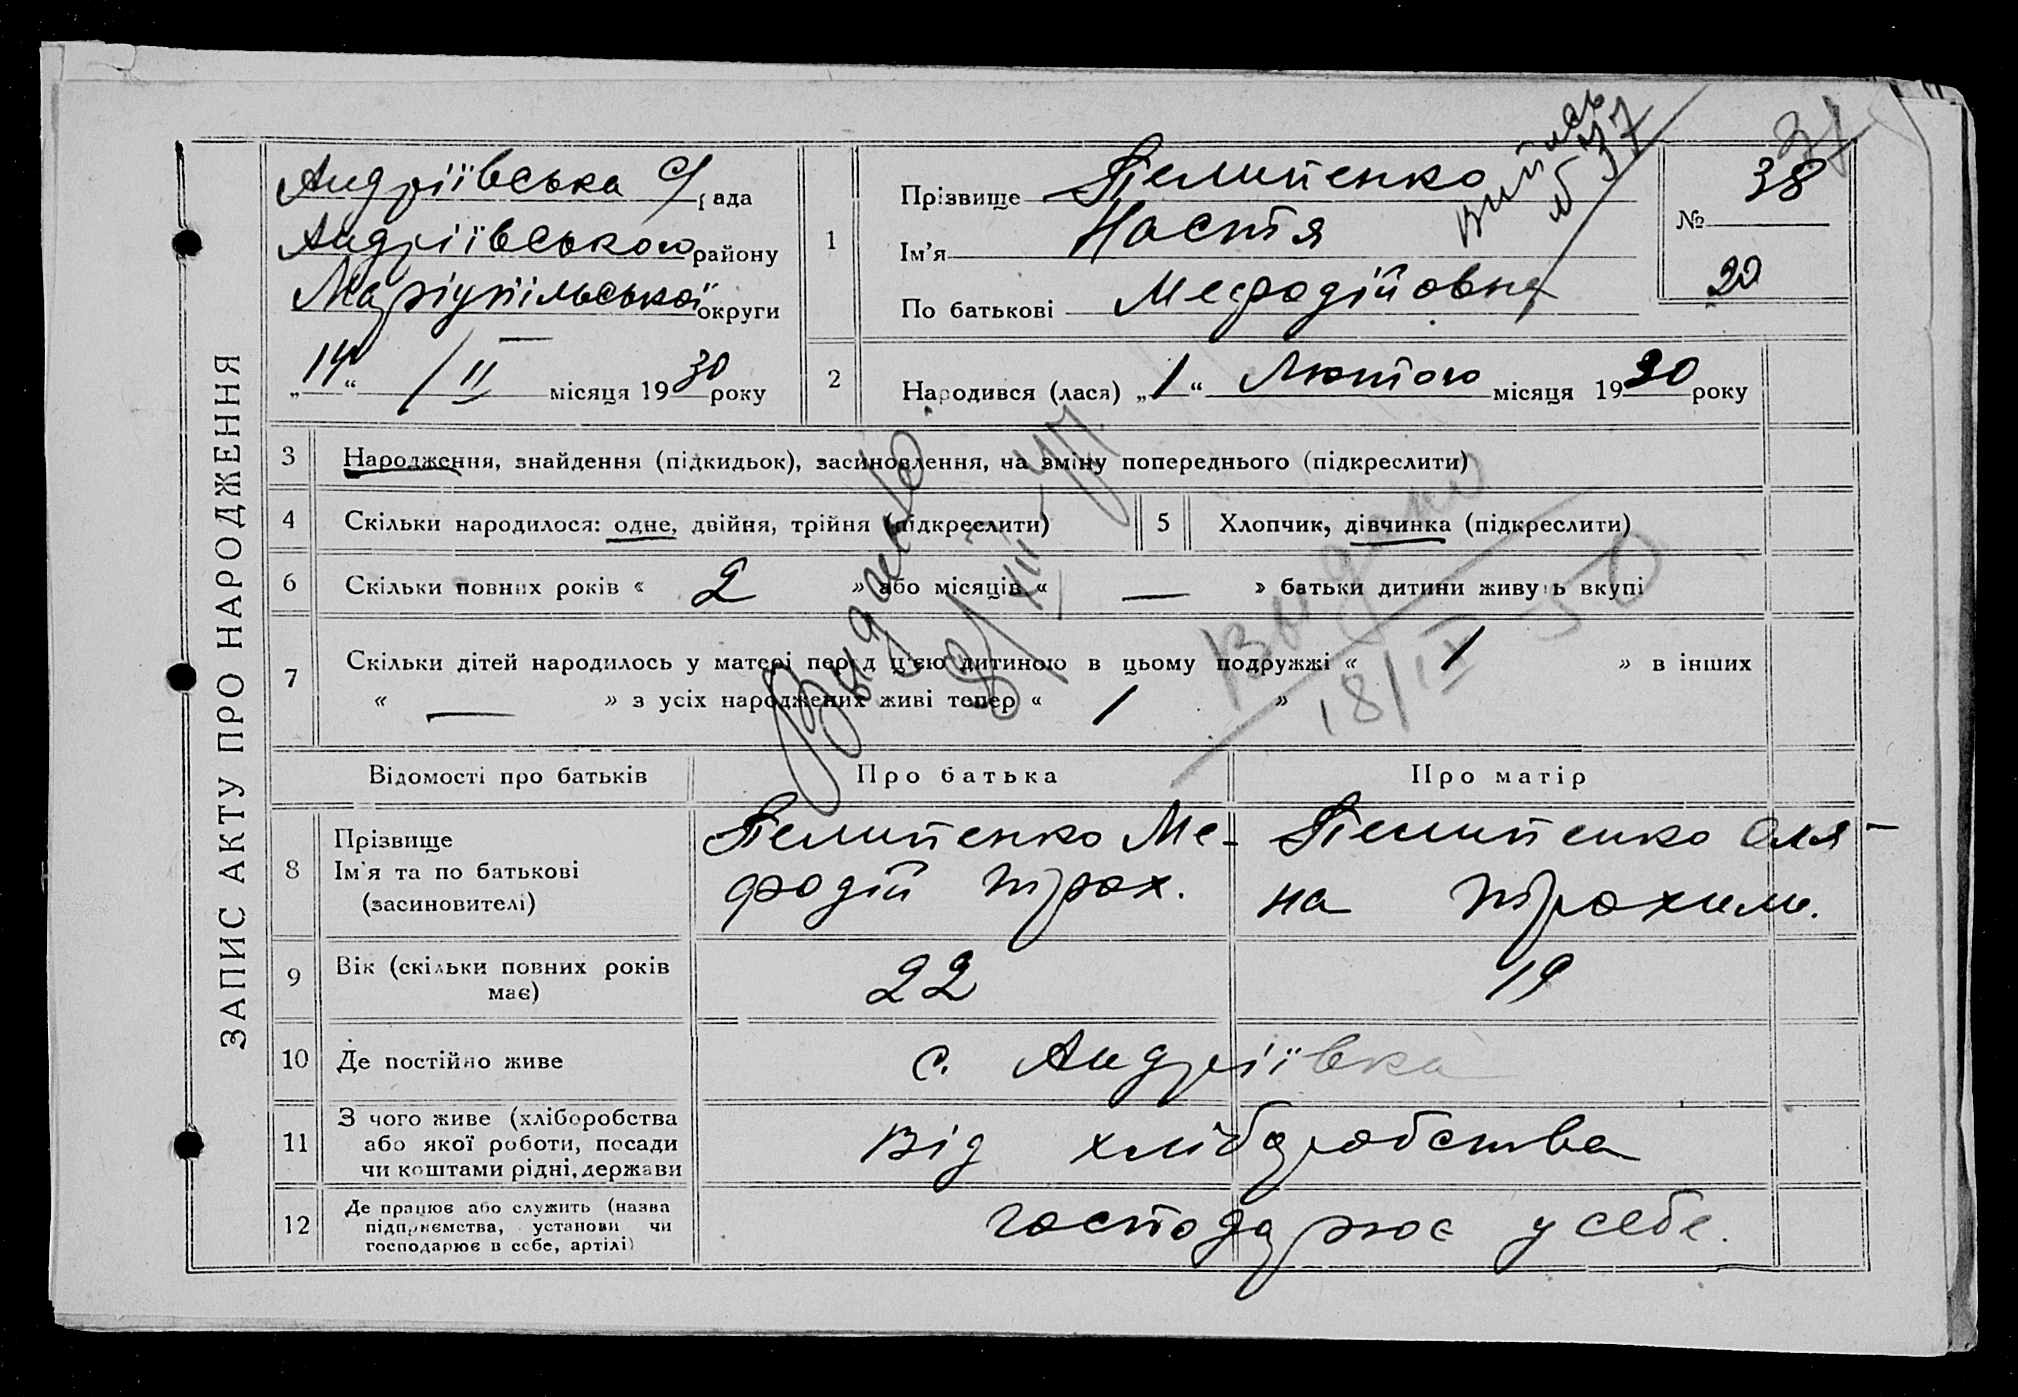 ЗАПИС АКТУ ПРО НАРОДЖЕННЯ
Андріївська с/рада
Андріївського району
Маріупільської округи
„14“ / II місяця 1930 року
1
Прізвище Пелипенко
Ім'я Настя
По батькові Мефодійовна
Випись
№ 37
31
№ 38
20
2 Народився (лася) „1“ Лютого місяця 1930 року
3 Народження, знайдення (підкидьок), засиновлення, на зміну попереднього (підкреслити)
4 Скільки народилося: одне, двійня, трійня (підкреслити) 5 Хлопчик, дівчинка (підкреслити)
6 Скільки повних років « 2 » або місяців « — » батьки дитини живуть вкупі
7 Скільки дітей народилось у матері перед ц'єю дитиною в цьому подружжі « 1 » в інших
« — » з усіх народжених живі тепер « 1 »
Видано
18/IX 50
Відомості про батьків Про батька Про матір
8 Прізвище
Ім'я та по батькові
(засиновителі)
Пелипенко Ме-
фодій Трох.
Пелипенко Оля-
на Трохим.
9 Вік (скільки повних років
має)
22 19
10 Де постійно живе с. Андріївка
11 З чого живе (хліборобства
або якої роботи, посади
чи коштами рідні, держави
від хліборобства
12 Де працює або служить (назва
підприємства, установи чи
господарює в себе, артілі)
господарює у себе.